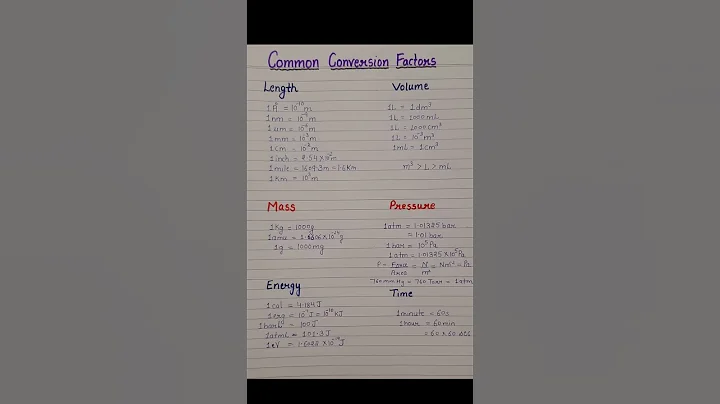 Common Conversion Factors
Length
1Å = 10⁻¹⁰m
1nm = 10⁻⁹m
1um = 10⁻⁶m
1mm = 10⁻³m
1cm = 10⁻²m
1inch = 2.54×10⁻²m
1mile = 1609.3m = 1.6Km
1Km = 10³m
Volume
1L = 1dm³
1L = 1000mL
1L = 1000cm³
1L = 10⁻³m³
1mL = 1cm³
m³ > L > mL
Mass
1Kg = 1000g
1amu = 1.6606×10⁻²⁴g
1g = 1000mg
Pressure
1atm = 1.01325 bar
= 1.01 bar
1bar = 10⁵Pa
1atm = 1.01325×10⁵Pa
P = Force/Area = N/m² = Nm⁻² = Pa
760 mm Hg = 760 Torr = 1atm
Energy
1cal = 4.184J
1erg = 10⁻⁷J = 10⁻¹⁰KJ
= 100J
1atmL = 101.3J
1eV = 1.6022×10⁻¹⁹J
Time
1minute = 60s
1hour = 60min
= 60×60 sec